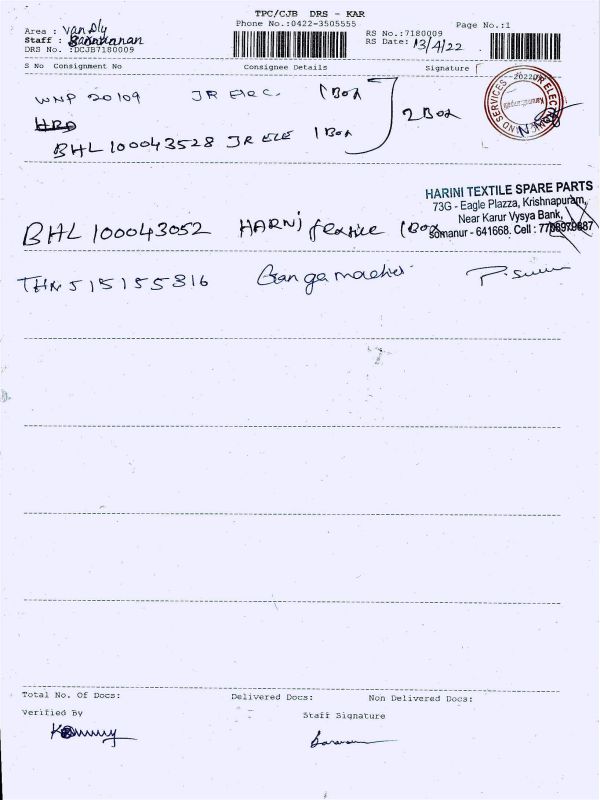 TPC/CJB DRS - KAR
Phone No.:0422-3505555
Page No.:1
Area : Van Dly
Staff :
DRS No. :DCJB7180009
RS No.:7180009
RS Date: 13/4/22
S No Consignment No Consignee Details Signature
WNP 20109 JR Elec. 1 Box
BHL 100043528 JR ELE 1 Box
2 Box
HARINI TEXTILE SPARE PARTS
73G - Eagle Plazza, Krishnapuram,
Near Karur Vysya Bank,
Somanur - 641668. Cell :
BHL 100043052 HARNi 1 Box
THN 515155816 Ganga
Total No. Of Docs: Delivered Docs: Non Delivered Docs:
Verified By
Staff Signature